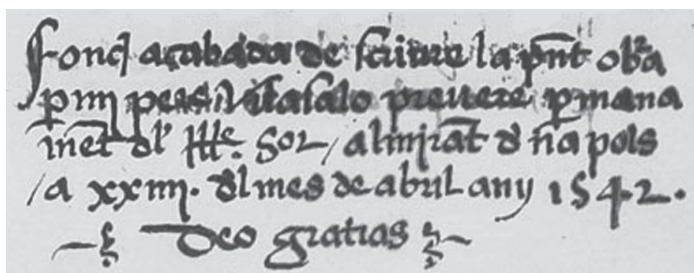 Fonch acabada de scriure la pn̄t ob̄ra
p̄ mj pere vilasalo preuere p̄ mana
mēt dl' Ill.e Sor / almirāt d n̄apols
/ a xxiiij. dl mes de abril any 1542.
Deo gratias